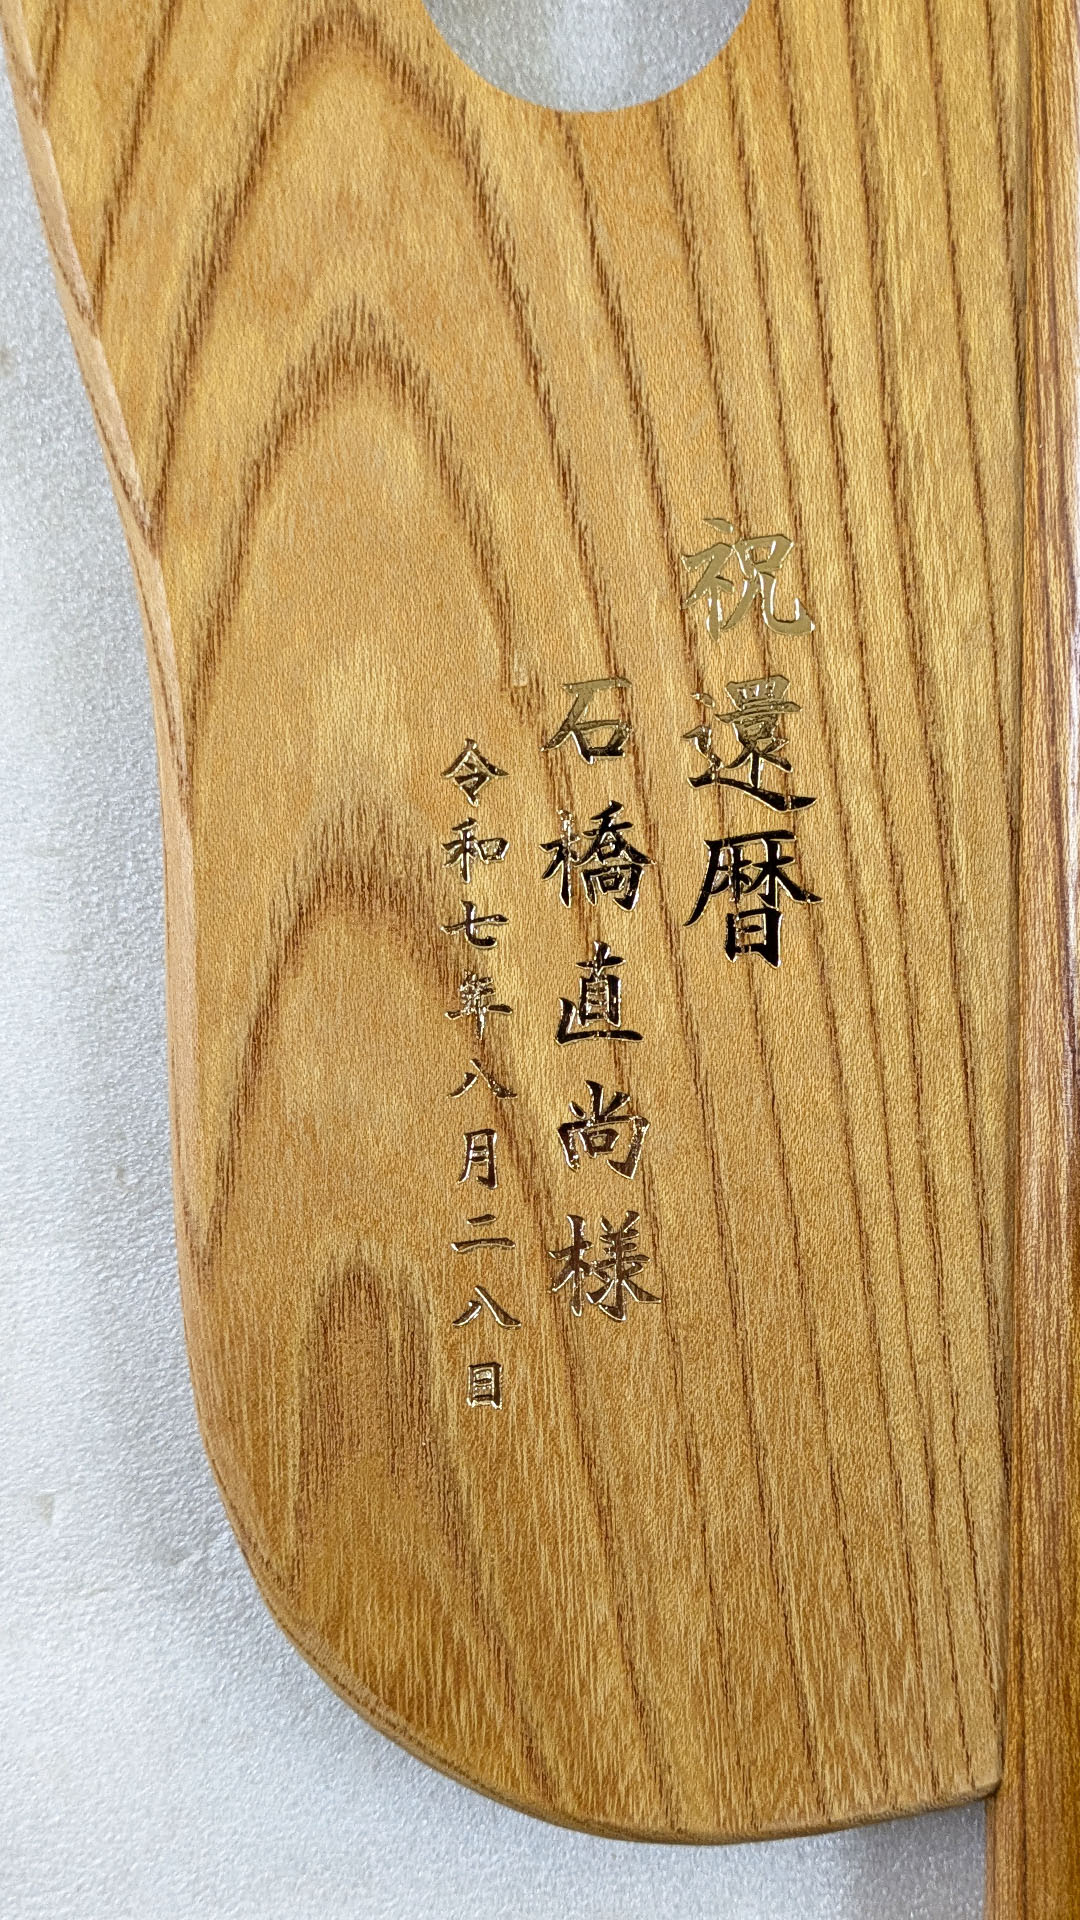 祝還暦
石橋直尚様
令和七年八月二八日